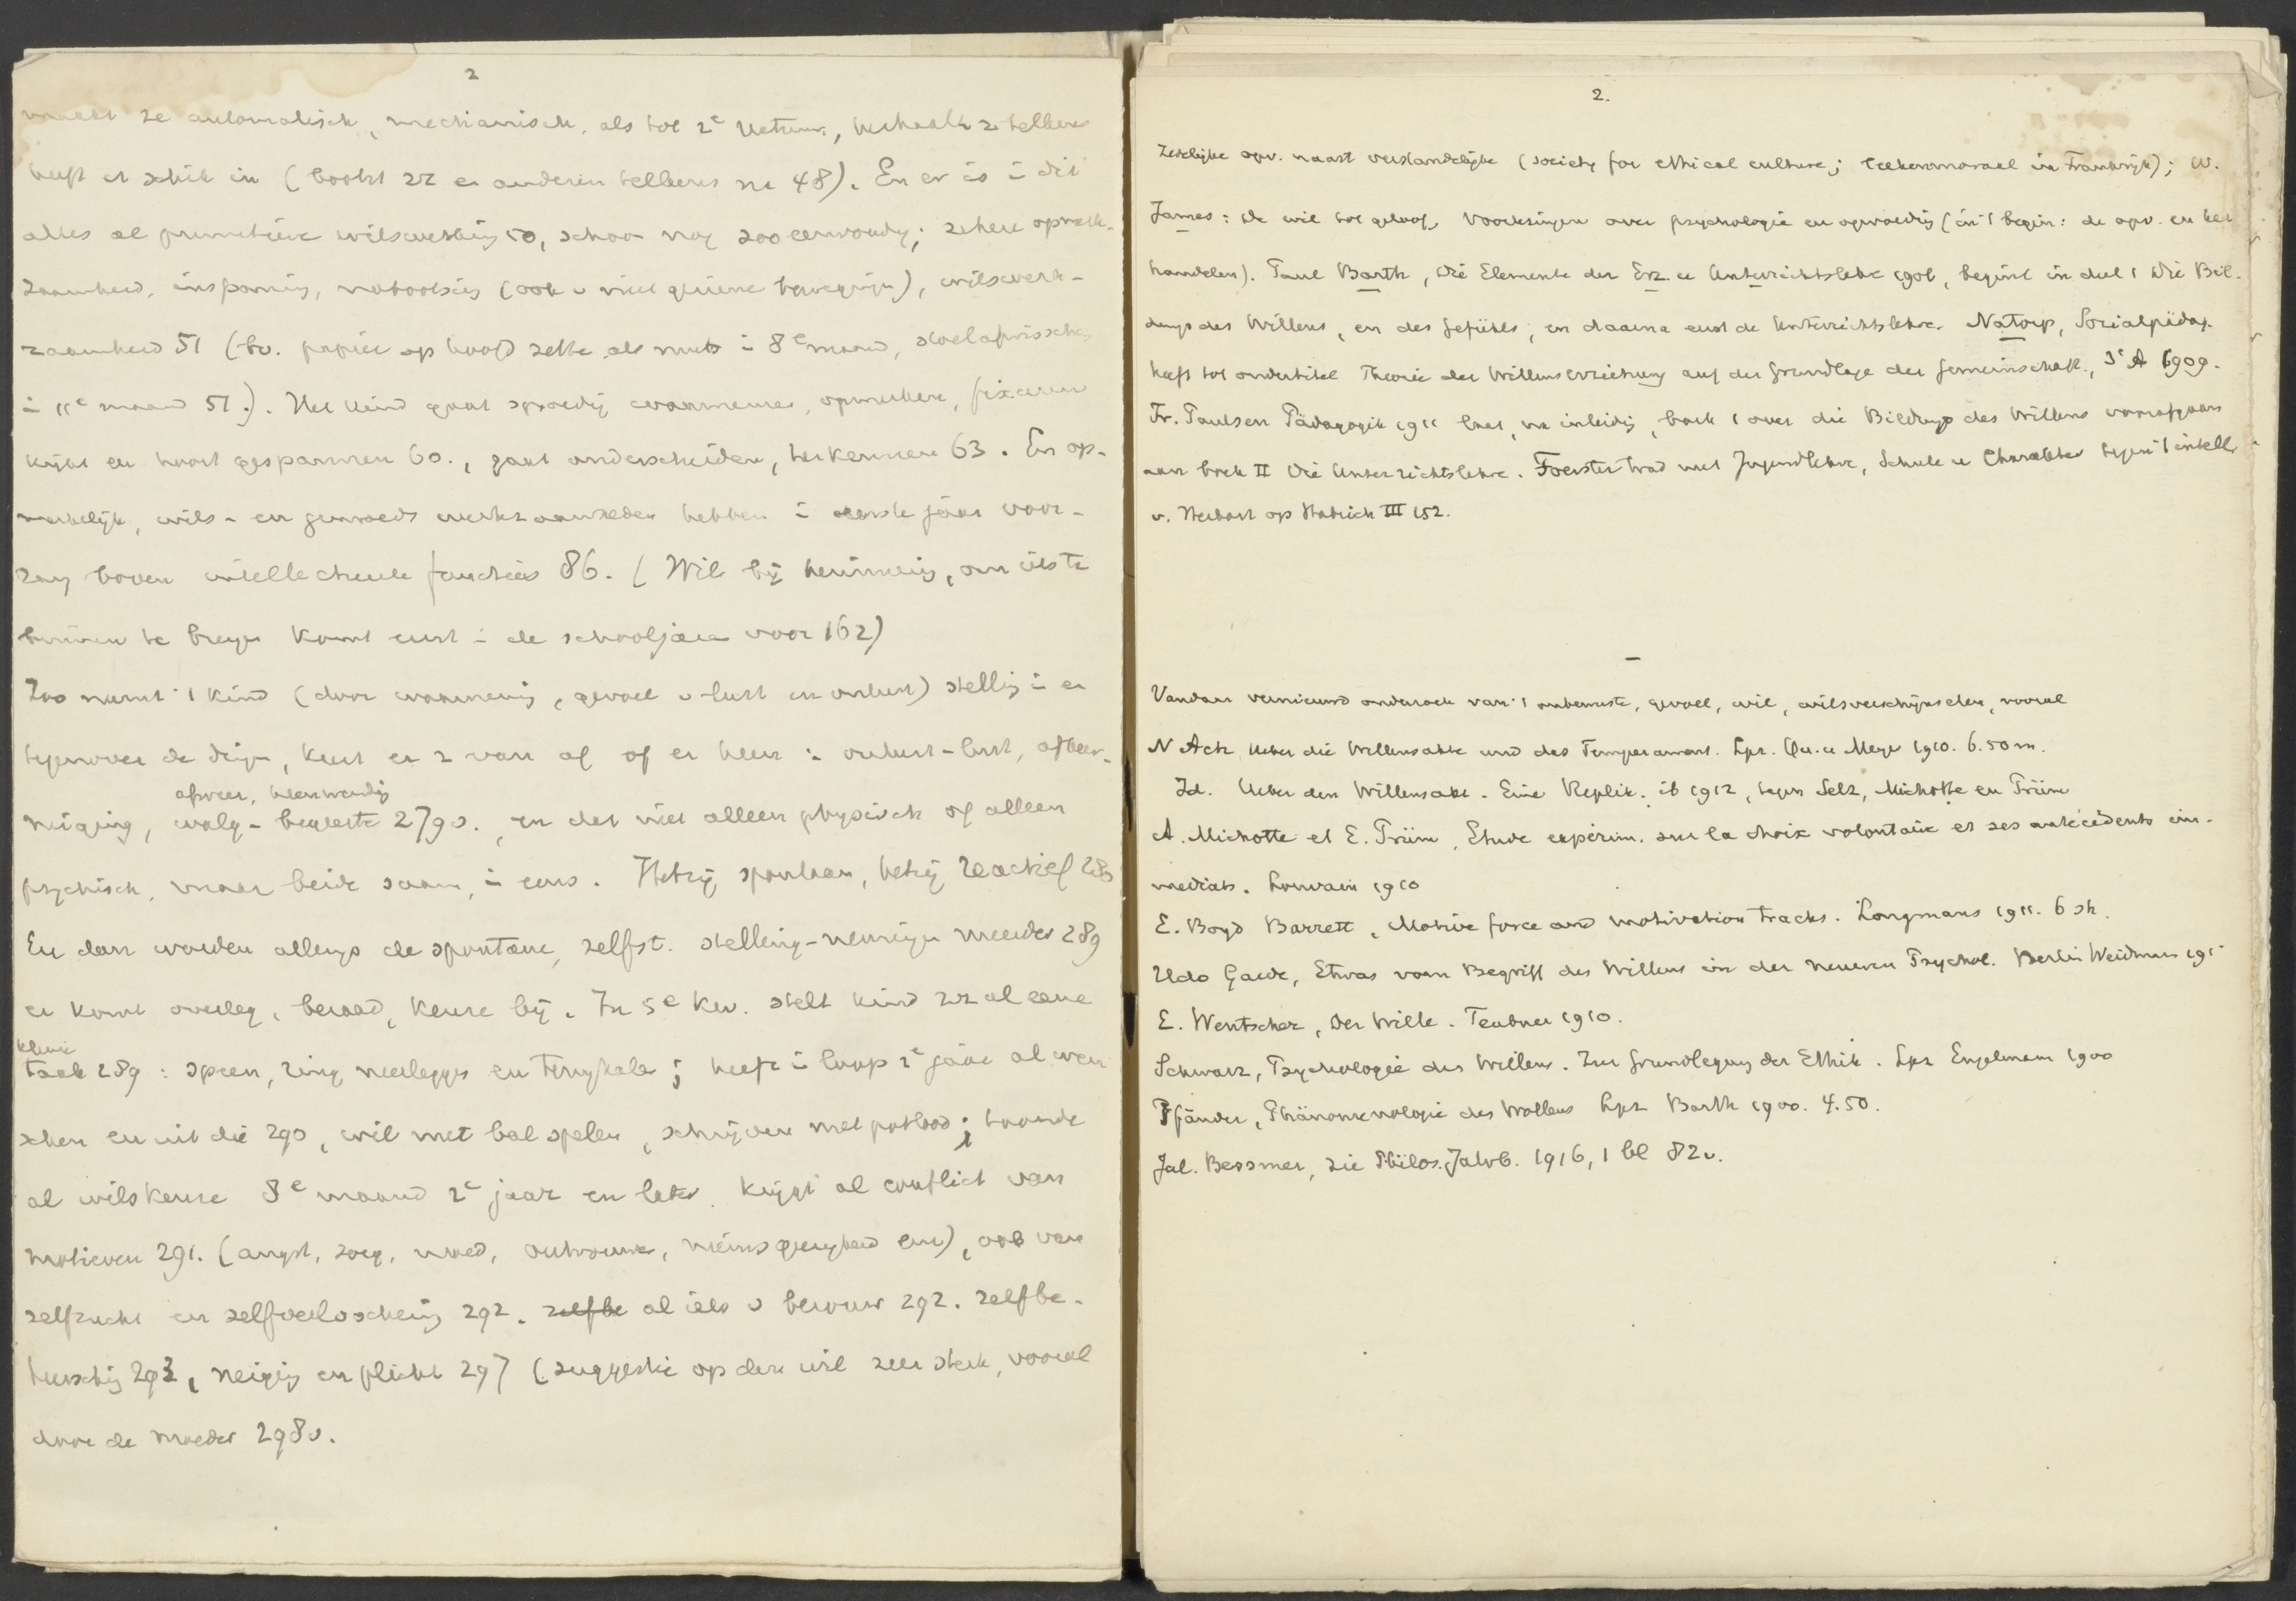 2
maakt ze automatisch, mechanisch, als tot 2e natuur, herhaalt ze telkens
heeft er schik in (bootst zz en anderen telkens na 48). En er is in dit
alles al primitieve wilswerking 50, schoon nog zoo eenvoudig; zekere opmerk-
zaamheid, inspanning, nabootsing (ook v niet geziene bewegingen), wilswerk-
zaamheid 51 (bv. papier op hoofd zetten als muts in 8e maand,
in 11e maand 51.). Het kind gaat spoedig waarnemen, opmerken, fixeeren
kijkt en hoort gespannen 60., gaat onderscheiden, herkennen 63. En op-
merkelijk, wils- en gemoeds werkzaamheden hebben in eerste jaar voor-
rang boven intellectueele functies 86. (Wil bij herinnering, om iets te
binnen te brengen komt eerst in de schooljaren voor 162)
Zoo neemt 't kind (door waarneming, gevoel v lust en onlust) stelling in en
tegenover de dingen, keert er z van af of er heen in onlust-lust, afkeer-
afweer, heenwending
neiging, walg-begeerte 279v., en dat niet alleen physisch of alleen
psychisch, maar beide saam, in eens. Hetzij spontaan, hetzij reactief 280
En dan worden allengs de spontane, zelfst. stelling-nemingen meerder 289
er komt overleg, beraad, keuze bij. In 5e kw. stelt kind zz al eene
kleine
taak 289: speen, ring neerleggen en terughalen; heeft in loop 2e jaar al wen
schen en uit die 290, wil met bal spelen, schrijven met potlood; toonde
al wilskeuze 8e maand 2e jaar en later. krijgt al conflict van
motieven 291. (angst, zorg, moed, vertrouwen, nieuwsgierigheid enz), ook van
zelfzucht en zelfverloochening 292. zelfbe al iets v berouw 292. Zelfbe-
heersching 293, neiging en plicht 297 (suggestie op den wil zeer sterk, vooral
door de moeder 298v.
2.
Zedelijke opv. naast verstandelijke (society for ethical culture; leekenmoraal in Frankrijk); W.
James: de wil tot geloof, Voorlezingen over psychologie en opvoeding (in 't begin: de opv. en het
handelen). Paul Barth, die Elemente der Erz. u Unterrichtslehre 1906, begint in deel 1 Die Bil-
dung des Willens, en des Gefühls, en daarna eerst de Unterrichtslehre. Natorp, Socialpädag.
heeft tot ondertitel Theorie der Willenserziehung auf der Grundlage der Gemeinschaft, 3e A 1909.
Fr. Paulsen Pädagogik 1911 laat, na inleiding, boek 1 over die Bildung des Willens voorafgaan
aan boek II Die Unterrichtslehre. Foerster trad met Jugendlehre, Schule u Charakter tegen 't intell
v. Herbart op III 152.
–
Vandaar vernieuwd onderzoek van 't onbewuste, gevoel, wil, wilsverschijnselen, vooral
N Ach Ueber die Willensakte und das Temperament. Lpz. Qu. u Meyer 1910. 6.50 m.
Id. Ueber den Willensakt. Eine Replik. ib 1912, tegen Selz, Michotte en Prüm
A. Michotte et E. Prüm, Etude expérim. sur le choix volontaire et ses antécédents im-
médiats. Louvain 1910
E. Boyd Barrett, Motive force and motivation tracks. Longmans 1911. 6 sh.
Udo Gaede, Etwas vom Begriff des Willens in der neueren Psychol. Berlin Weidmann 191
E. Wentscher, Der Wille. Teubner 1910.
Schwarz, Psychologie des Willens. Zur Grundlegung der Ethik. Lpz Engelmann 1900
Pfänder, Phänomenologie des Wollens Lpz Barth 1900. 4.50.
Jul. Bessmer, zie Philos. Jahrb. 1916, 1 bl 82v.